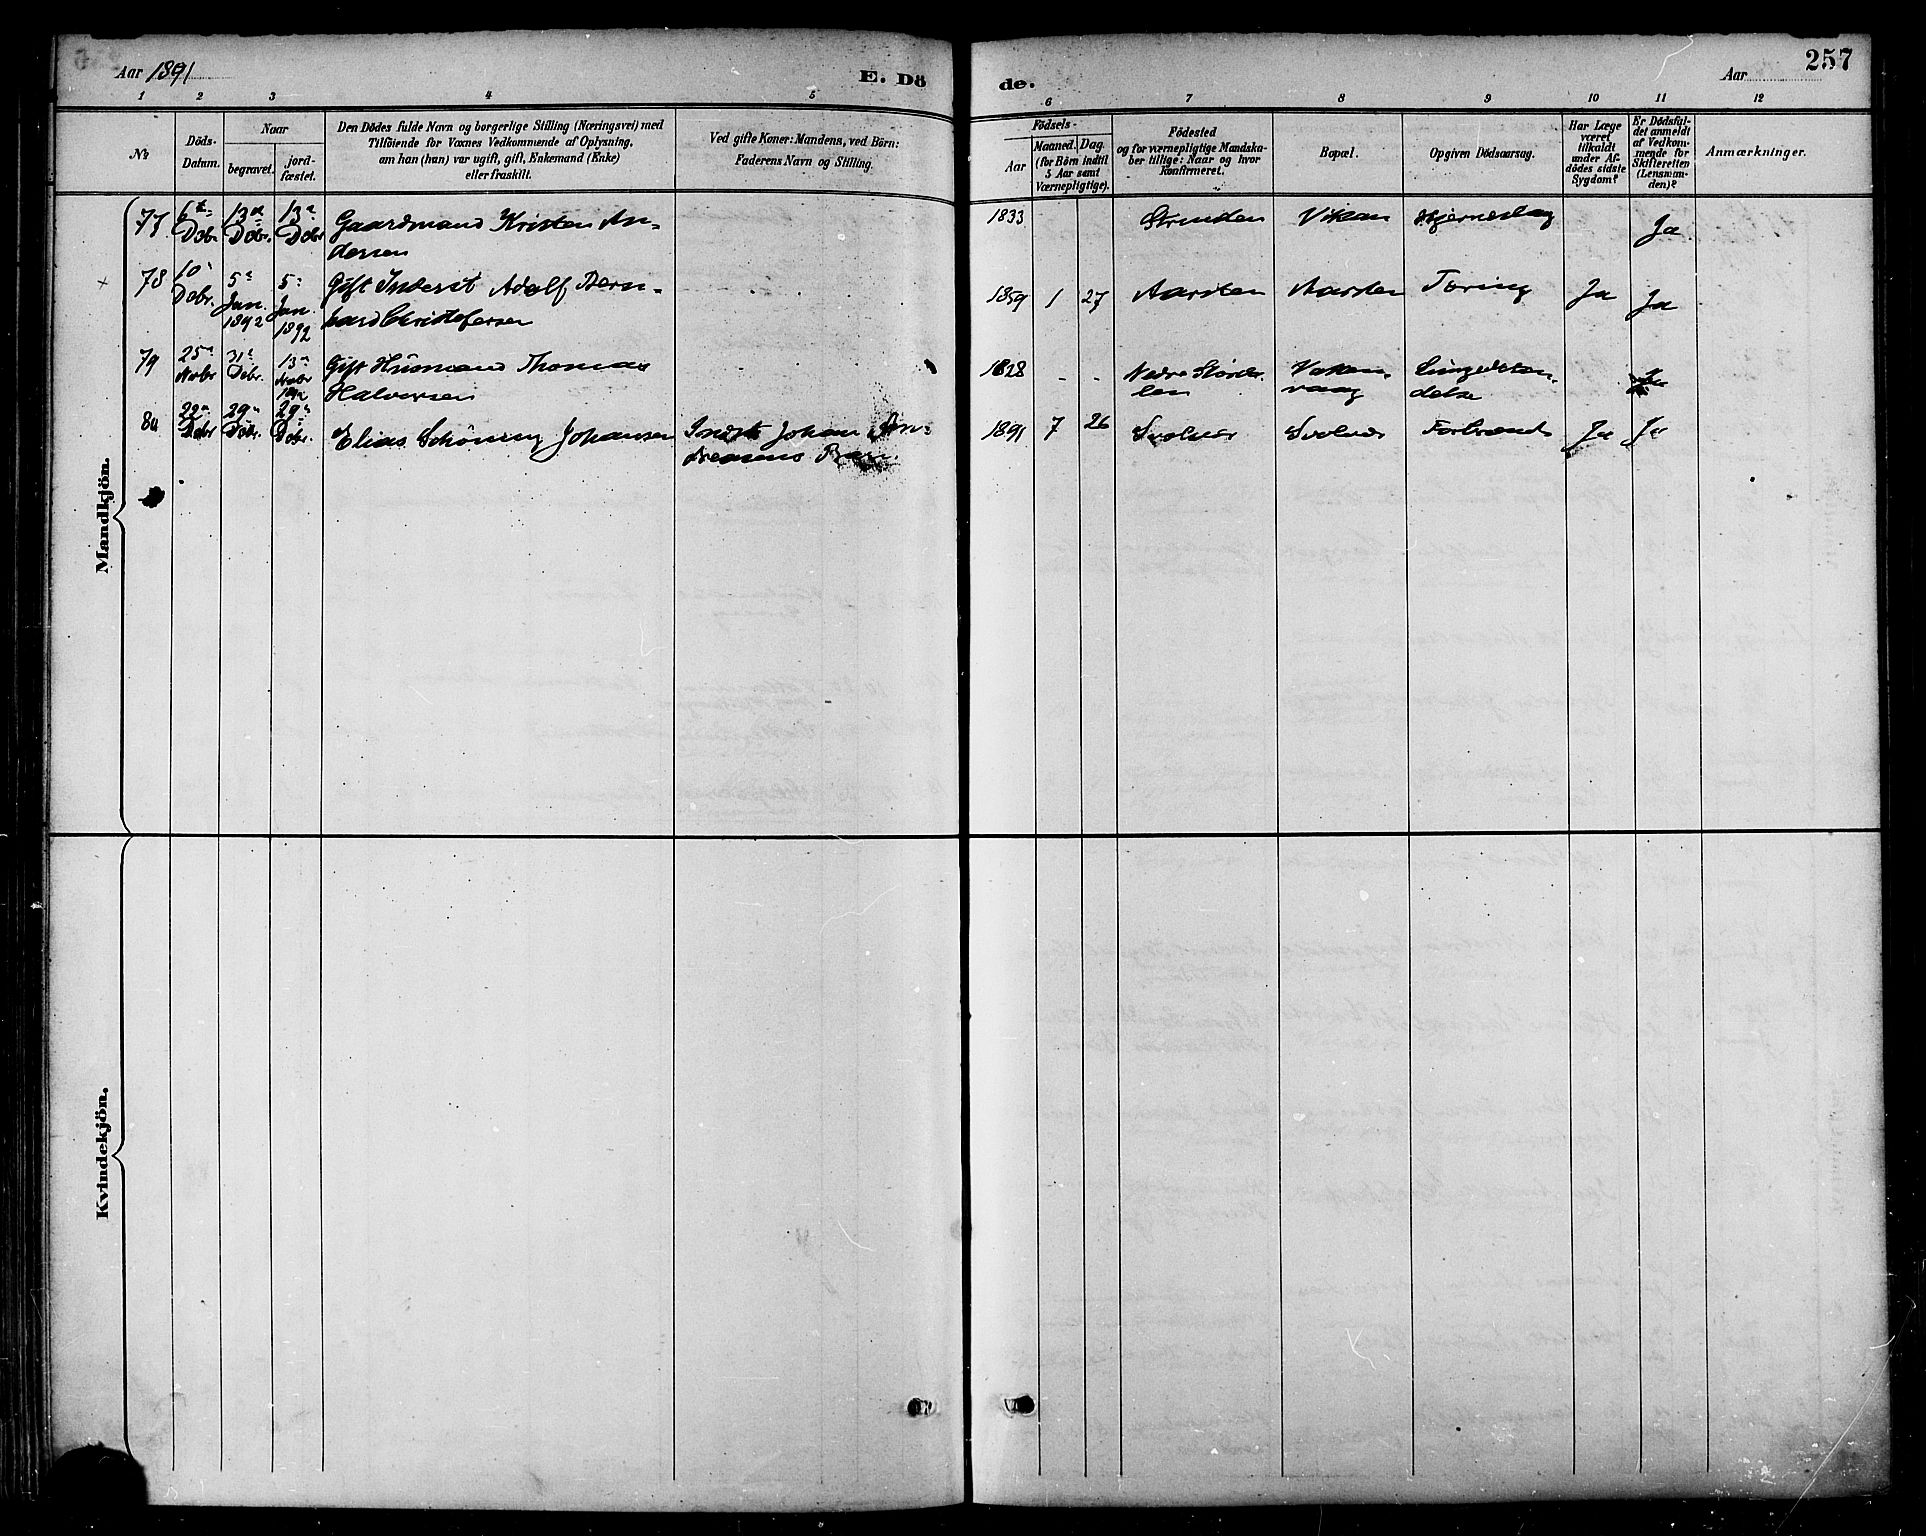 Aar 1891
E. Dö
de.
Aar
257
1 2 3 4 5 6 7 8 9 10 11 12
No
Döds-
Datum.
Naar
begravet.
jord-
fæstet.
Den Dödes fulde Navn og borgerlige Stilling (Næringsvei) med
Tilföiende for Voxnes Vedkommende af Oplysning,
om han (hun) var ugift, gift, Enkemand (Enke)
eller fraskilt.
Ved gifte Koner: Mandens, ved Börn:
Faderens Navn og Stilling.
Födsels-
Aar
Maaned. Dag.
(for Börn indtil
5 Aar samt
Værnepligtige).
Födested
og for værnepligtige Mandska-
ber tillige: Naar og hvor
konfirmeret.
Bopæl.
Opgiven Dödsaarsag.
Har Læge
været
tilkaldt
under Af-
dödes sidste
Sygdom?
Er Dödsfal-
det anmeldt
af Vedkom-
mende for
Skifteretten
(Lensman-
den)?
Anmærkninger.
Mandkjön.
77 6te Debr 13de Debr. 13de Debr Gaardmand Kristen An-
dersen
1833 Strinden Vikan Hjerneslag Ja
78 10 Debr. 5 Jan. 1892 5 Jan. 1892 Gift Inderst Adolf Bern-
hard Christofersen
1859 1 27 Aarsten Aarsten Tæring Ja Ja
79 25 Novbr 31 Debr. 13 1892 Gift Husmand Thomas
Halvorsen
1828 - - Nedre Stördalen
80 22 Debr 29 Debr. 29 Debr. Elias Schöning Johansen Johan An-
dreasens Barn.
1891 7 26 Svolvær Svolvær Forbrændt Ja Ja
Kvindekjön.